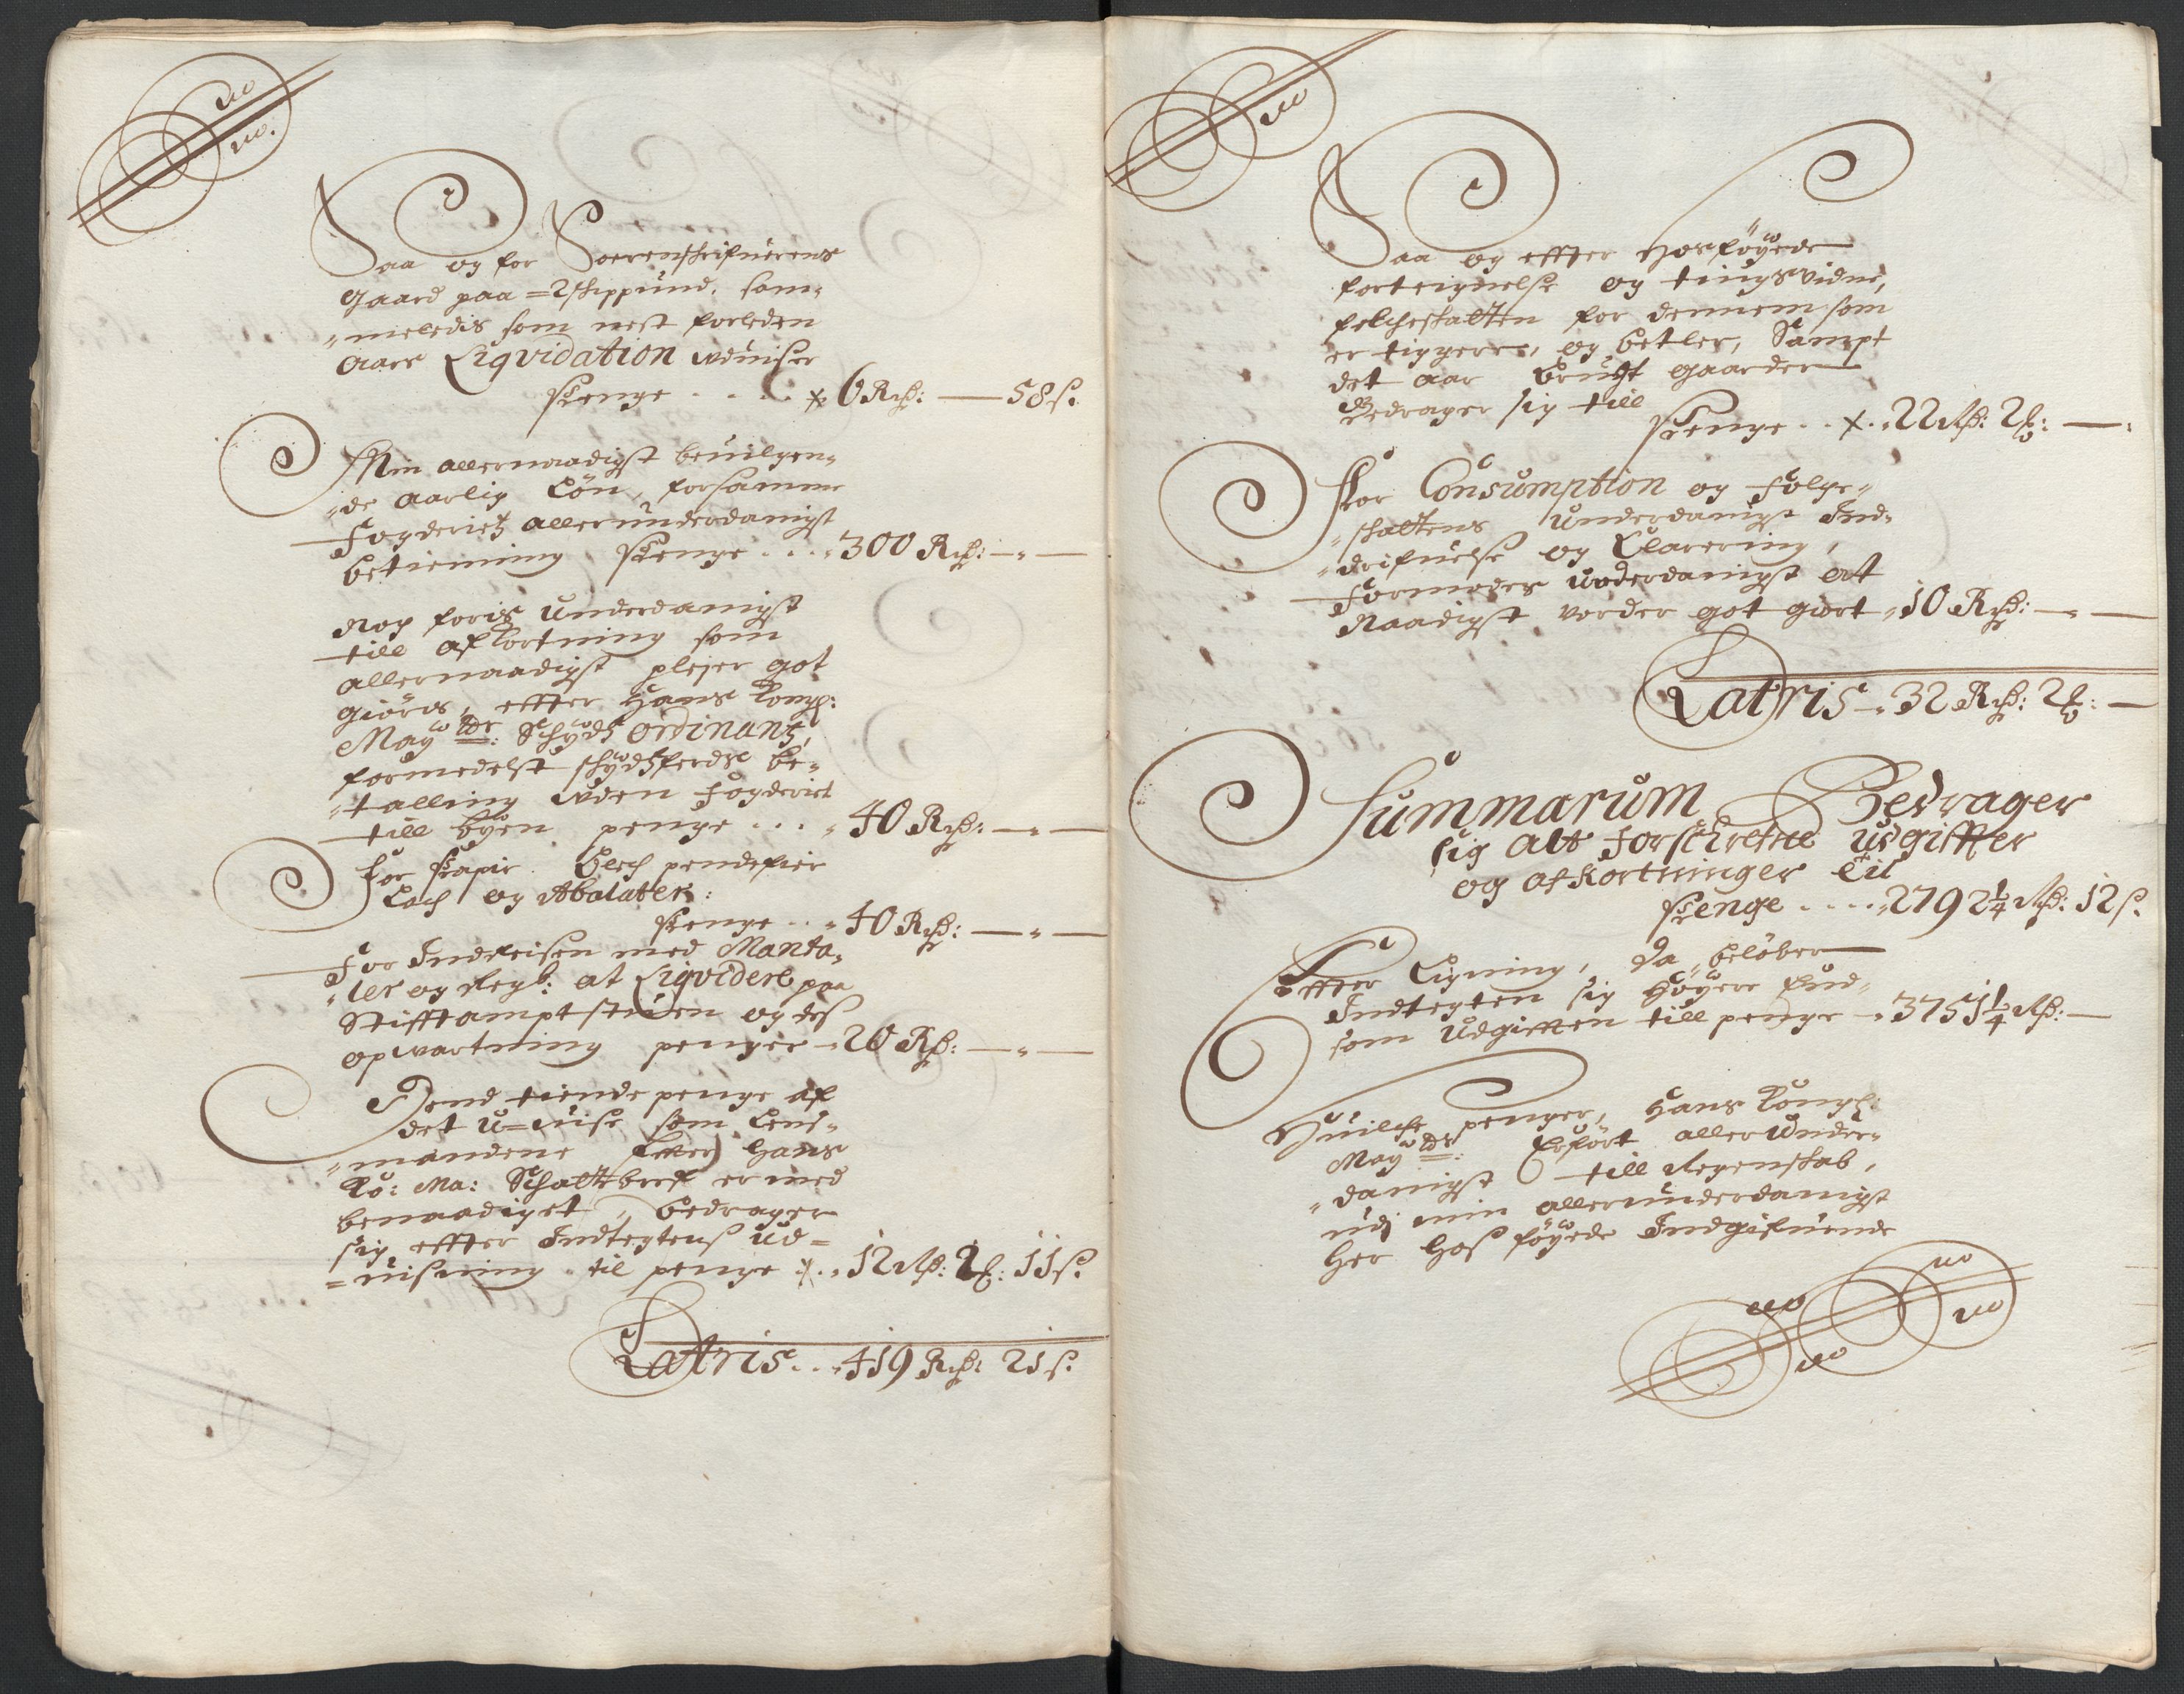 Saa og for Sorenskrifuerens
gaard paa =2 skippund. sam„
„meledis som nest forleden
aars Liqvidation udviser
Penge . . . . x 6 Rd: — 58 s.
Min allernaadigst beuilgen„
„de aarlig Lön, for samme
Fogderietz allerunderdanigst
betiening Penge . . . „300 Rd: — „ —
Nog foris underdanigst
till afkortning som
allernaadigst plejer got
giöris, effter Hans Kongl:
Mayᵗᵈˢ: Schydz Ordinantz,
formedelst skydzferds be„
„talling uden Fogderiet
till byen penge . . . „ 40 Rd: — „ —
For Papir Blech pendefier
Lach og Abalater:
Penge . . „ 40 Rd: — „ —
For Indreisen med Manta„
„ler og Regb: at Liqvidere paa
Stifftamptstuen og des
opvartning penger „ 20 Rd: — „ —
Dend tiende penge af
det u=uise som Lens„
„mandene effter Hans
Ko: Ma: Schattebref er med
benaadiget, bedrager
sig effter Indtegtens ud=
=uisning til penge x . „ 12 Rd: 2 ℔: 11 s.
Latris . . „ 419 Rd: 21 s.
Saa og effter hosföyede
fortegnelse og tingsvidne,
folcheskatten for dennem som
er tiggere, og betler, Sampt
det aar brugt gaarder
Bedrager sig till
Penge . . x . „ 22 Rd: 2 ℔: —
For Consumption og Folge„
„skattens Underdanigst Ind„
„drifuelse og Clarering,
Formodes underdanigst at
Naadigst vorder got giort „ 10 Rd: — „ —
Latris „ 32 Rd: 2 ℔: —
Summarum Bedrager
sig alt Forschrefne udgiffter
og afkortninger til
Penge . . . . „ 2792¼ Rd: 12 s.
Effter Ligning, da belöber
Indtegten sig höyere End„
som Udgifften till penge „ 3751¼ Rd: —
Huilche penger, Hans Kongl:
Mayᵗᵈˢ: Erfört allerunder„
„danigst till Regenskab,
udj min allerunderdanigst
her hos föyede Indgifuende